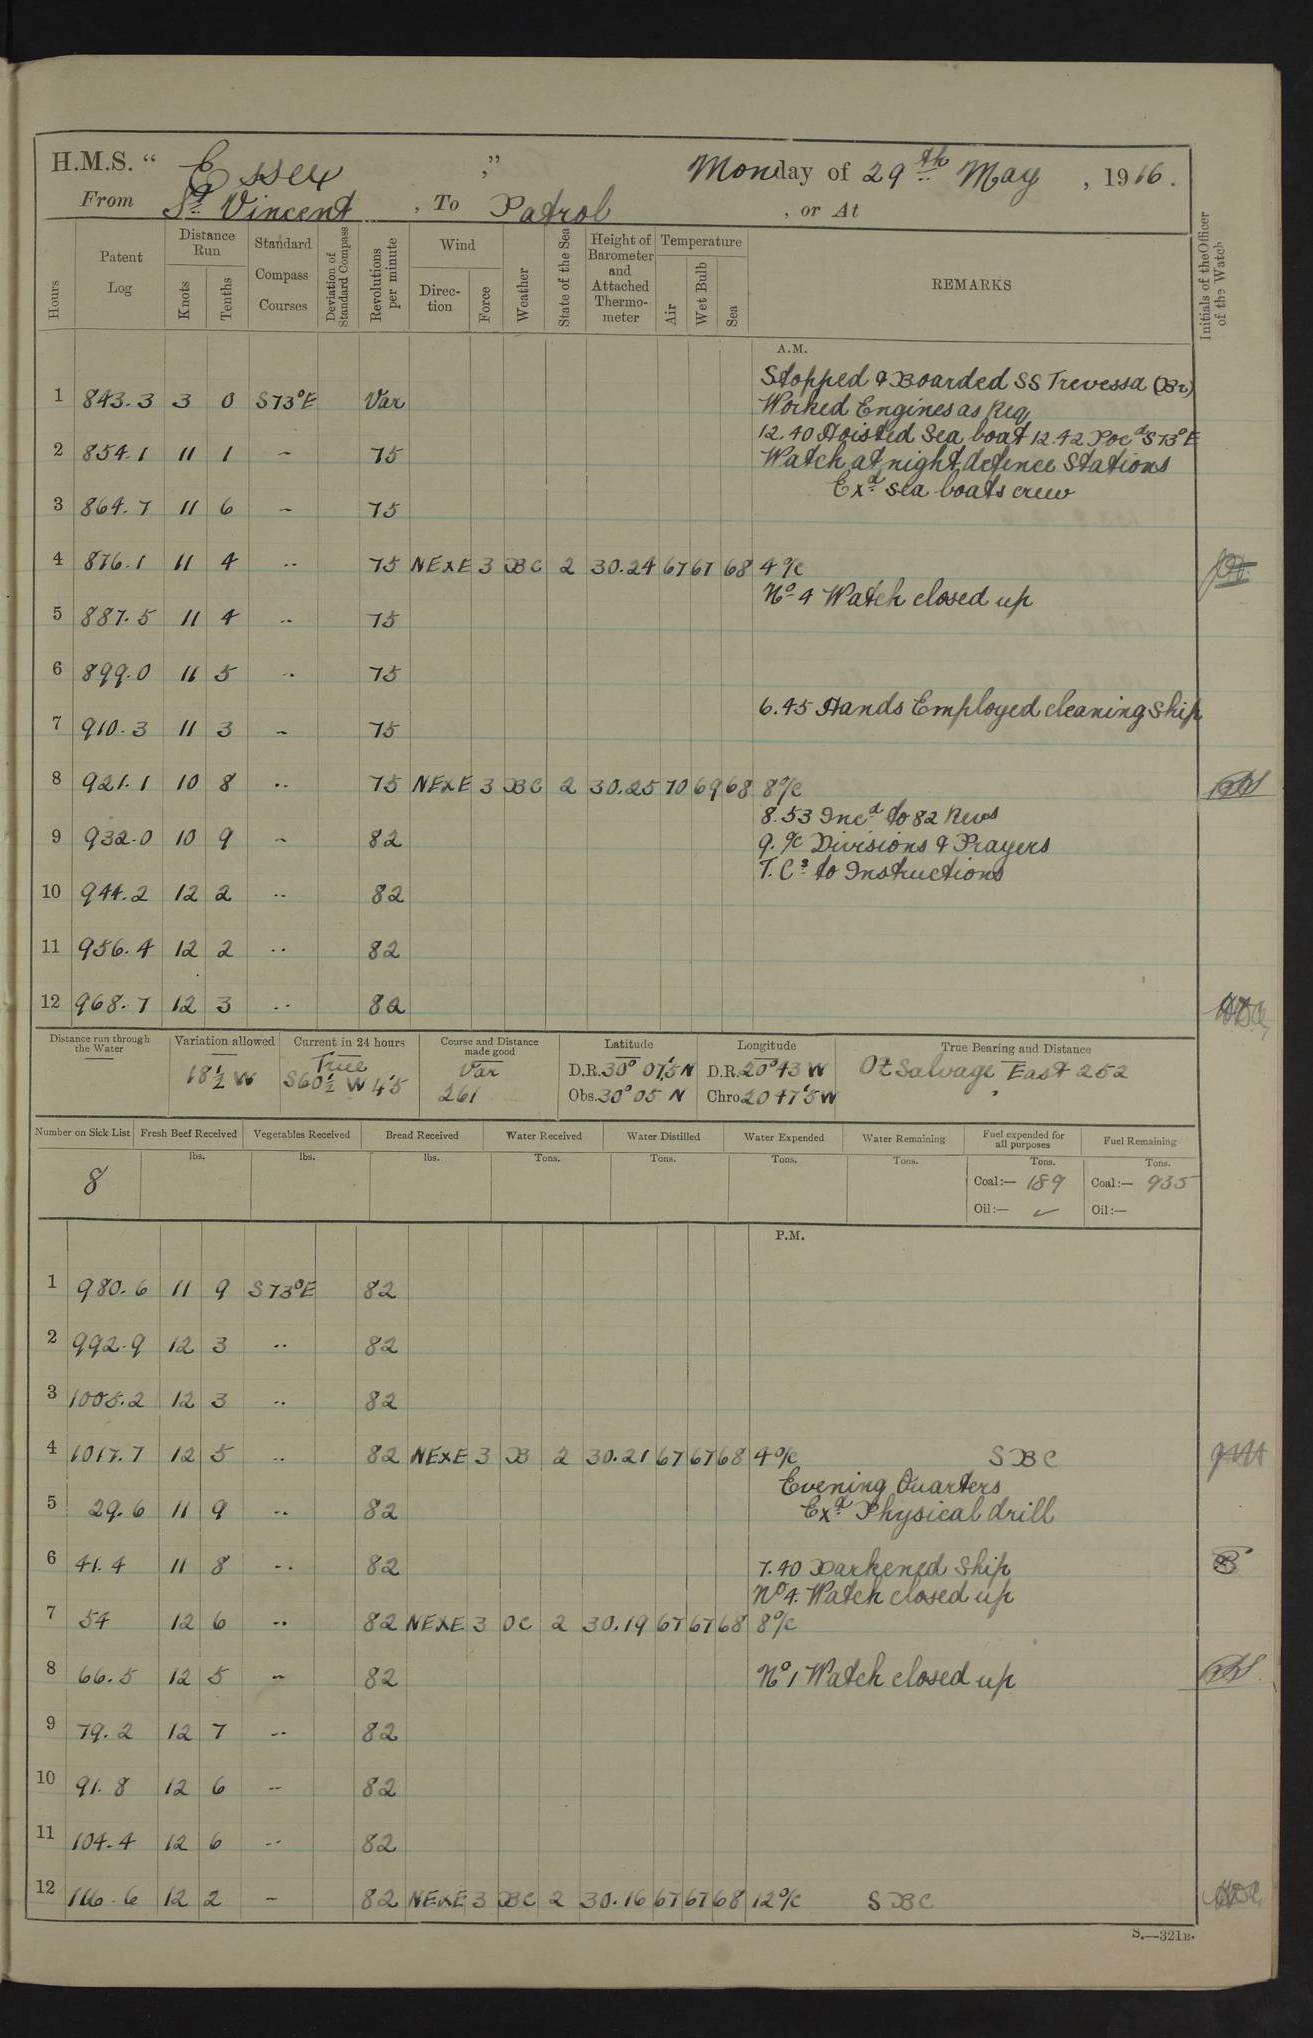 H.M.S. " Essex " Monday of 29th May, 1916.
From St. Vincent, To Patrol, or At
Hours
Patent Log
Distance Run
Knots
Tenths
Standard Compass Courses
Deviation of Standard Compass
Revolutions per minute
Wind
Direction
Force
Weather
State of the Sea
Height of Barometer and Attached Thermometer
Temperature
Air
Wet Bulb
Sea
REMARKS
Initials of the Officer of the Watch
A.M.
Stopped & Boarded SS Trevessa (Br)
1 843.3 3 0 S73°E Var Worked Engines as Req
12.40 Hoisted Sea boat 12.42 Procd S73°E
2 854.1 11 1 " 75 Watch at night defence Stations
Exd sea boats crew
3 864.7 11 6 " 75
4 876.1 11 4 " 75 NExE 3 BC 2 30.24 67 67 68 4 o/c
No 4 Watch closed up
5 887.5 11 4 " 75
6 899.0 11 5 " 75
6.45 Hands Employed cleaning Ship
7 910.3 11 3 " 75
8 921.1 10 8 " 75 NExE 3 BC 2 30.25 70 69 68 8 o/c
8.53 Incd to 82 Revs
9 932.0 10 9 " 82 9. o/c Divisions & Prayers
T.Cs to Instructions
10 944.2 12 2 " 82
11 956.4 12 2 " 82
12 968.7 12 3 " 82
Distance run through the Water
Variation allowed
18½ W
Current in 24 hours
True
S60½ W 4'5
Course and Distance made good
Var
261
Latitude
D.R. 30° 07'5 N
Obs. 30° 05 N
Longitude
D.R. 20° 43 W
Chro. 20 47'5 W
True Bearing and Distance
Gt Salvage East 252
Number on Sick List
8
Fresh Beef Received
lbs.
Vegetables Received
lbs.
Bread Received
lbs.
Water Received
Tons.
Water Distilled
Tons.
Water Expended
Tons.
Water Remaining
Tons.
Fuel expended for all purposes
Tons.
Coal:— 189
Oil:— ✓
Fuel Remaining
Tons.
Coal:— 935
Oil:—
P.M.
1 980.6 11 9 S73°E 82
2 992.9 12 3 " 82
3 1005.2 12 3 " 82
4 1017.7 12 5 " 82 NExE 3 B 2 30.21 67 67 68 4 o/c SBC
Evening Quarters
5 29.6 11 9 " 82 Exd Physical drill
6 41.4 11 8 " 82 7.40 Darkened Ship
No 4. Watch closed up
7 54 12 6 " 82 NExE 3 OC 2 30.19 67 67 68 8 o/c
8 66.5 12 5 " 82 No 1 Watch closed up
9 79.2 12 7 " 82
10 91.8 12 6 " 82
11 104.4 12 6 " 82
12 116.6 12 2 " 82 NExE 3 BC 2 30.16 67 67 68 12 o/c SBC
S.—321B.